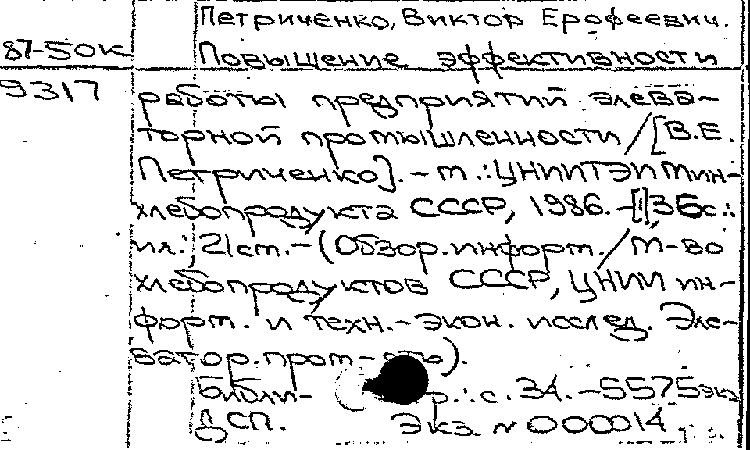 Петриченко, Виктор Ерофеевич.
87-50к Повышение эффективности
9317 работы предприятий элева-
торной промышленности / [В.Е.
Петриченко]. - М.: ЦНИИТЭИ Мин-
хлебопродукта СССР, 1986. - 36с.:
ил.; 21см. - (Обзор. информ. / М-во
хлебопродуктов СССР, ЦНИИ ин-
форм. и техн.-экон. исслед. Эле-
ватор. пром-сть).
Библи- р.: с. 34. - 5575экз
ДСП. Экз. N 000014.